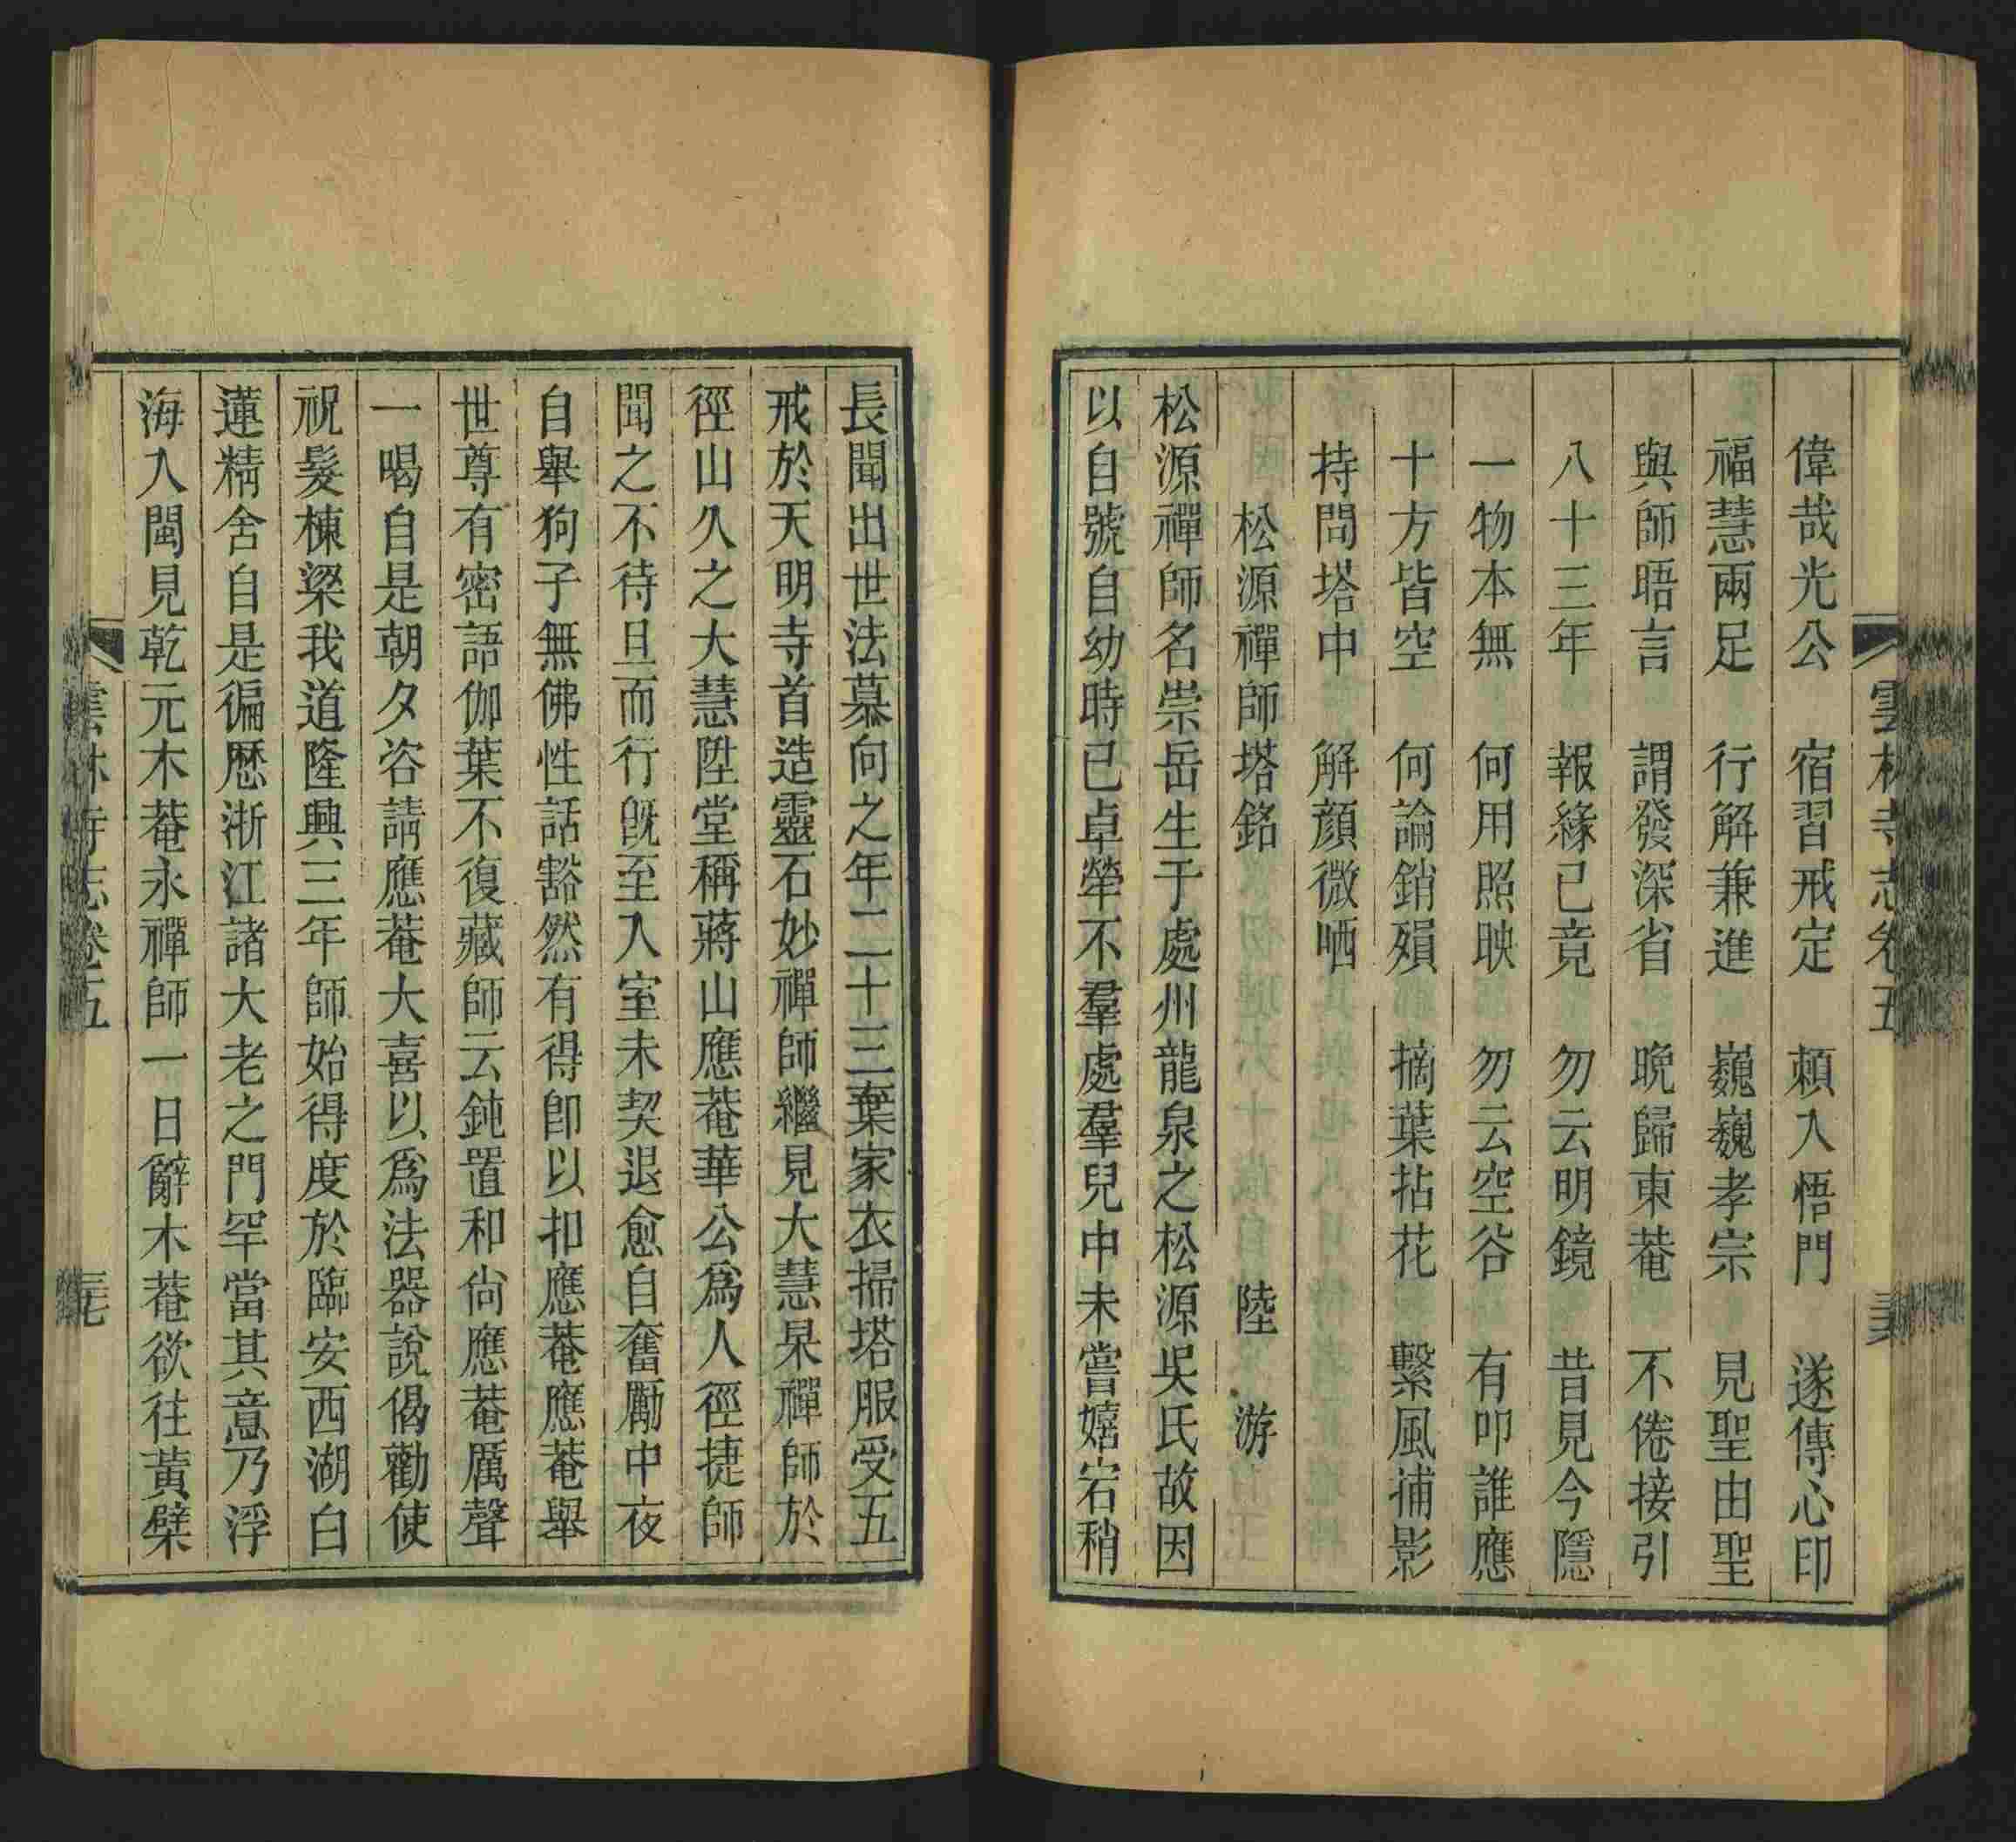 雲林寺志卷五
偉哉光公　宿習戒定　頼入悟門　遂傳心印
福慧兩足　行解兼進　巍巍孝宗　見聖由聖
與師晤言　謂發深省　晩歸東菴　不倦接引
八十三年　報緣已竟　勿云明鏡　昔見今隱
一物本無　何用照映　勿云空谷　有叩誰應
十方皆空　何論銷殞　摘葉拈花　繫風捕影
持問塔中　解顔微哂
松源禪師塔銘　陸　游
松源禪師名崇岳生于處州龍泉之松源吳氏故因
以自號自幼時已卓犖不羣處羣兒中未嘗嬉宕稍
長聞出世法慕向之年二十三棄家衣掃塔服受五
戒於天明寺首造靈石妙禪師繼見大慧杲禪師於
徑山久之大慧陞堂稱蔣山應菴華公爲人徑捷師
聞之不待旦而行旣至入室未契退愈自奮勵中夜
自舉狗子無佛性話豁然有得卽以扣應菴應菴舉
世尊有密語伽葉不復藏師云鈍置和尙應菴厲聲
一喝自是朝夕咨請應菴大喜以爲法器說偈勸使
祝髮棟梁我道隆興三年師始得度於臨安西湖白
蓮精舍自是徧歷浙江諸大老之門罕當其意乃浮
海入閩見乾元木菴永禪師一日辭木菴欲往黃檗
雲林寺志卷五